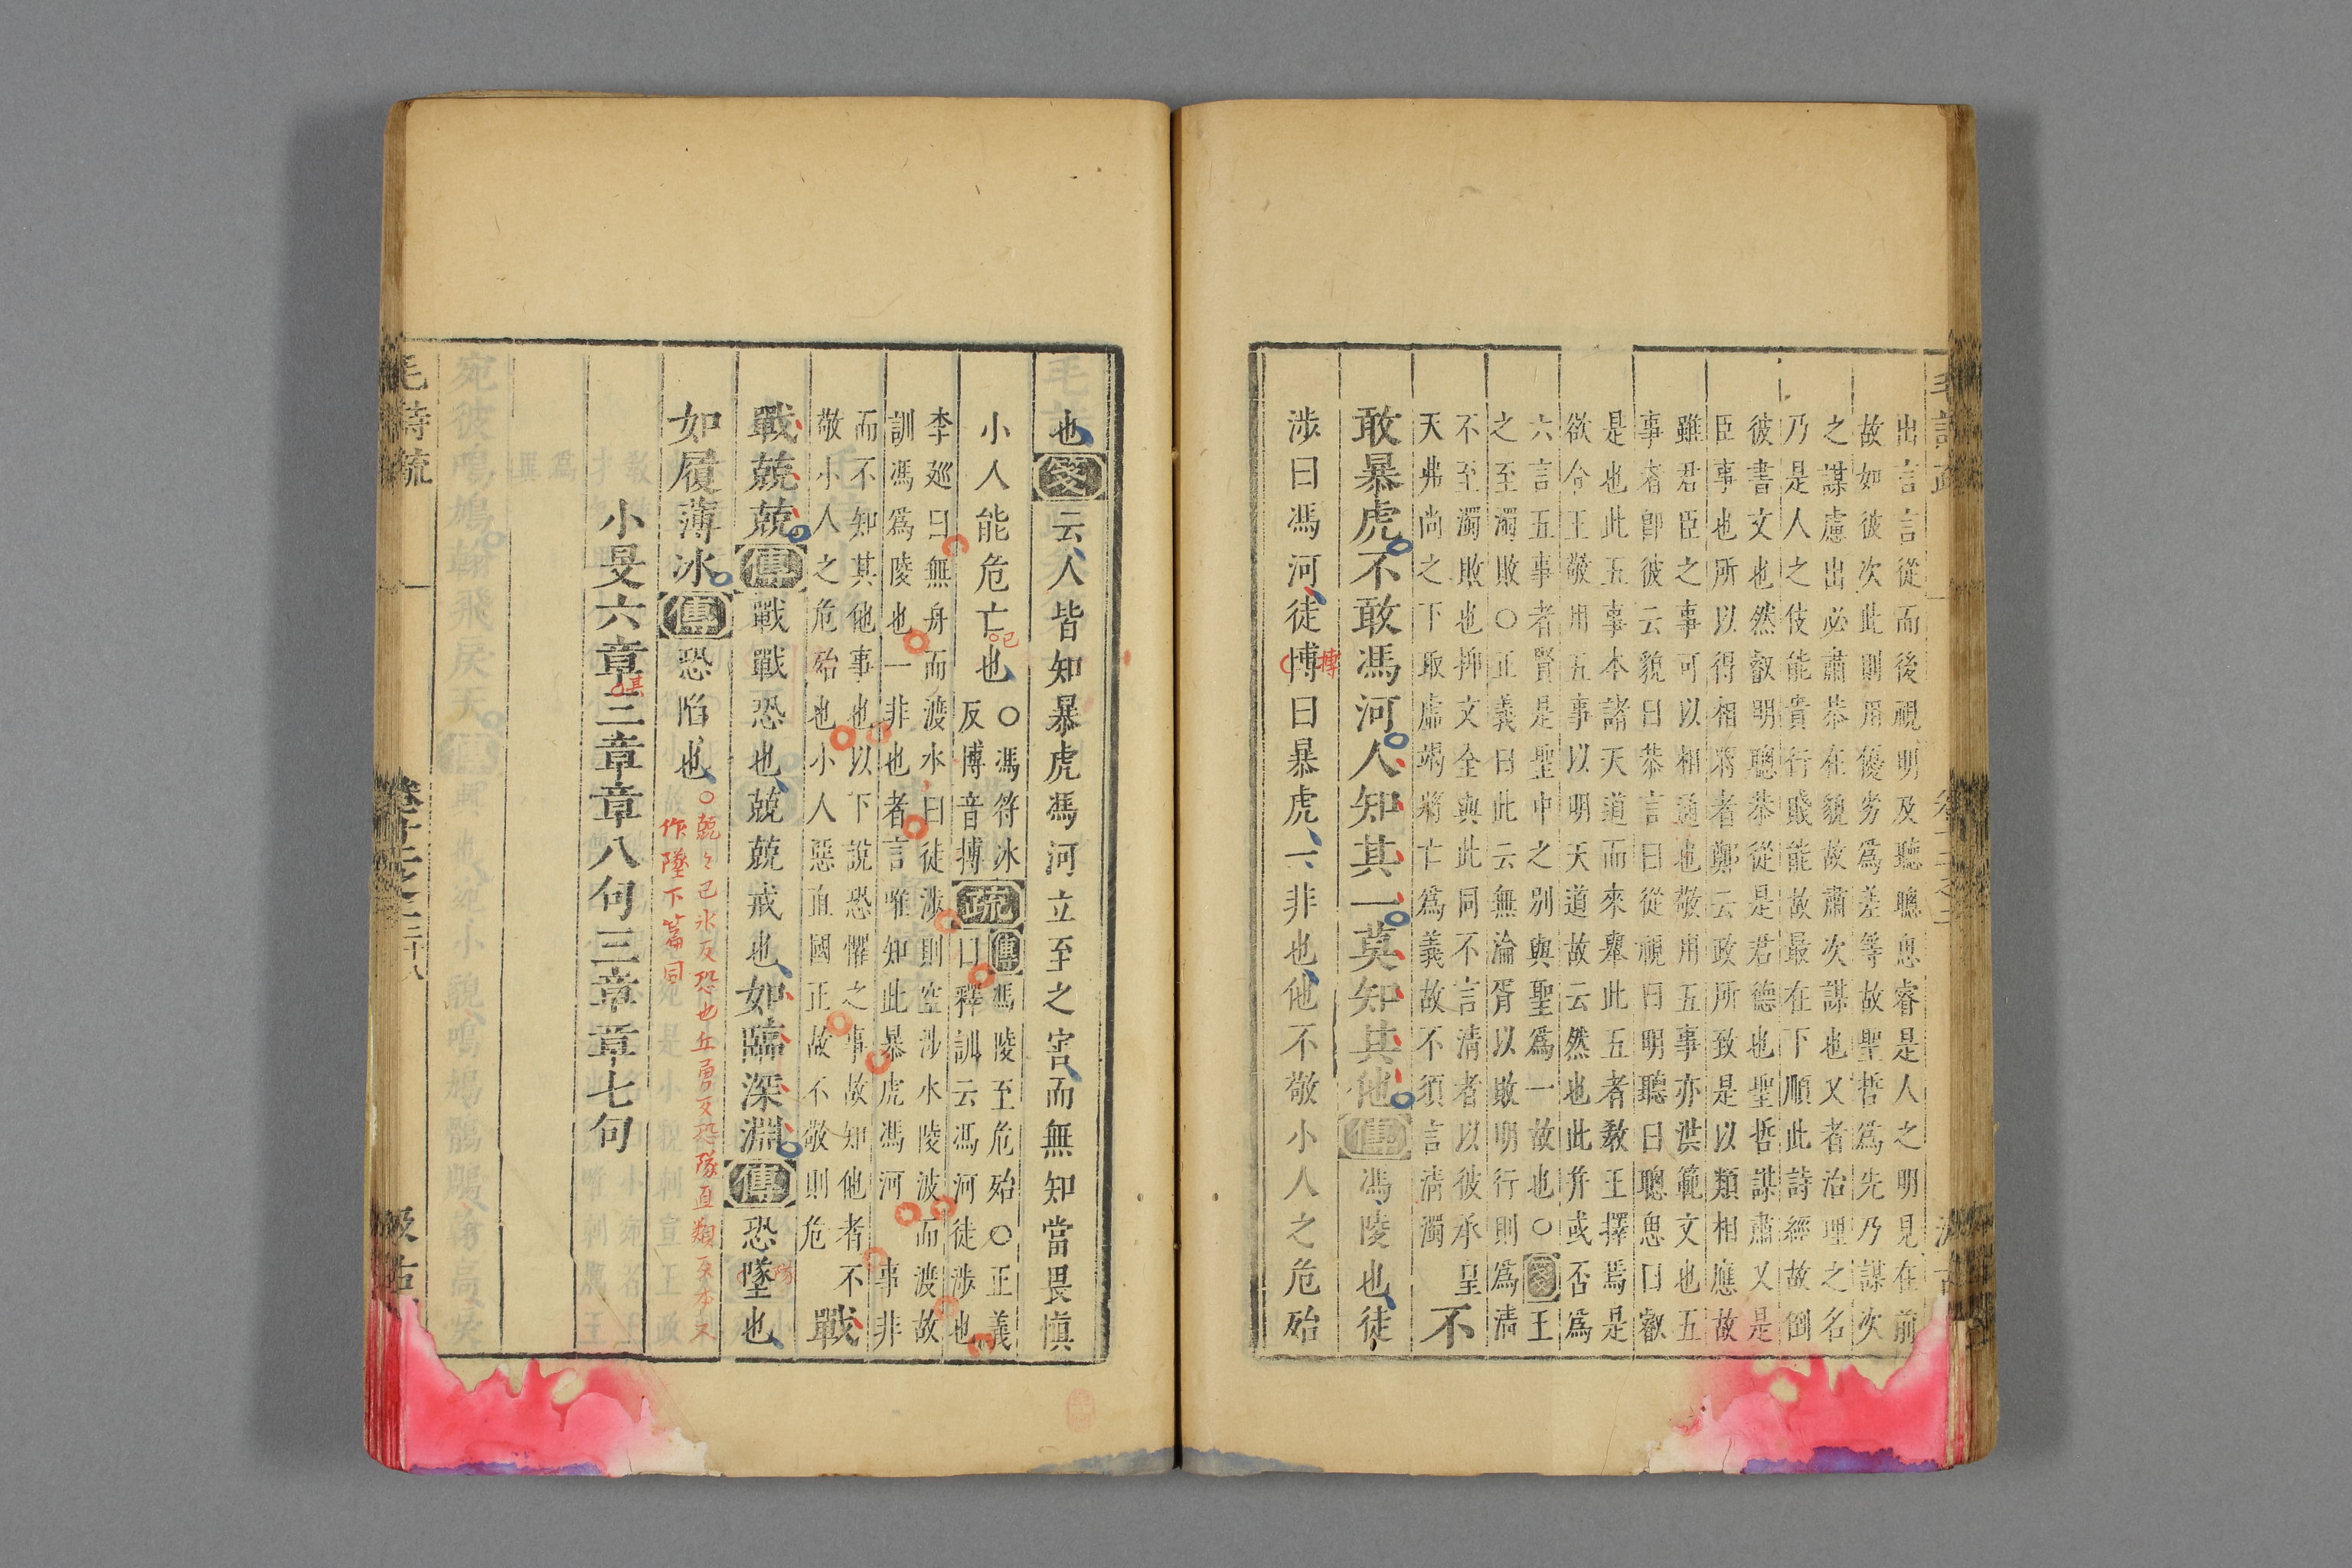 出言言從而後視明及聽聽思睿是人之明見在前
故如彼次此則用優劣為差等故聖哲為先乃謀次
之謀慮出必肅恭在貌故肅次謀也又者治理之名
乃是人之伎能貴行賤能故最在下順此詩經故倒
彼書文也然叡明聰恭從是君德也聖哲謀肅乂是
臣事也所以得相將者鄭云政所致是以類相應故
雖君臣之事可以相通也敬用五事亦洪範文也五
事者卽彼云貌曰恭言曰從視曰明聽曰聰思曰叡
是也此五事本諸天道而來舉此五者教王擇焉是
欲令王敬用五事以明天道故云然也此幷或否為
六言五事者賢是聖中之別與聖為一故也○箋王
之至濁敗○正義曰此云無淪胥以敗明行則為清
不至濁敗也抑文全與此同不言清者以彼承皇
天弗尚之下取虛竭將亡為義故不須言清濁
不
敢暴虎不敢馮河人知其一莫知其他傳馮陵也徒
涉曰馮河徒博曰暴虎一非也他不敬小人之危殆
搏
也箋云人皆知暴虎馮河立至之害而無知當畏愼
小人能危亡也○馮符冰
反博音搏
已
疏傳馮陵至危殆○正義
曰釋訓云馮河徒涉也
李廵曰無舟而渡水曰徒涉則空涉水陵波而渡故
訓馮為陵也一非也者言唯知此暴虎馮河一事非
而不知其他事也以下說恐懼之事故知他者不
敬小人之危殆也小人惡直國正故不敬則危
戰
戰兢兢傳戰戰恐也兢兢戒也如臨深淵傳恐墜也
隊
如履薄冰傳恐陷也
○兢々已氷反恐也丘勇反恐隊直類反本又
作墜下篇同
小旻六章三章章八句三章章七句
其
毛詩疏 卷十二之二 三十八 汲古